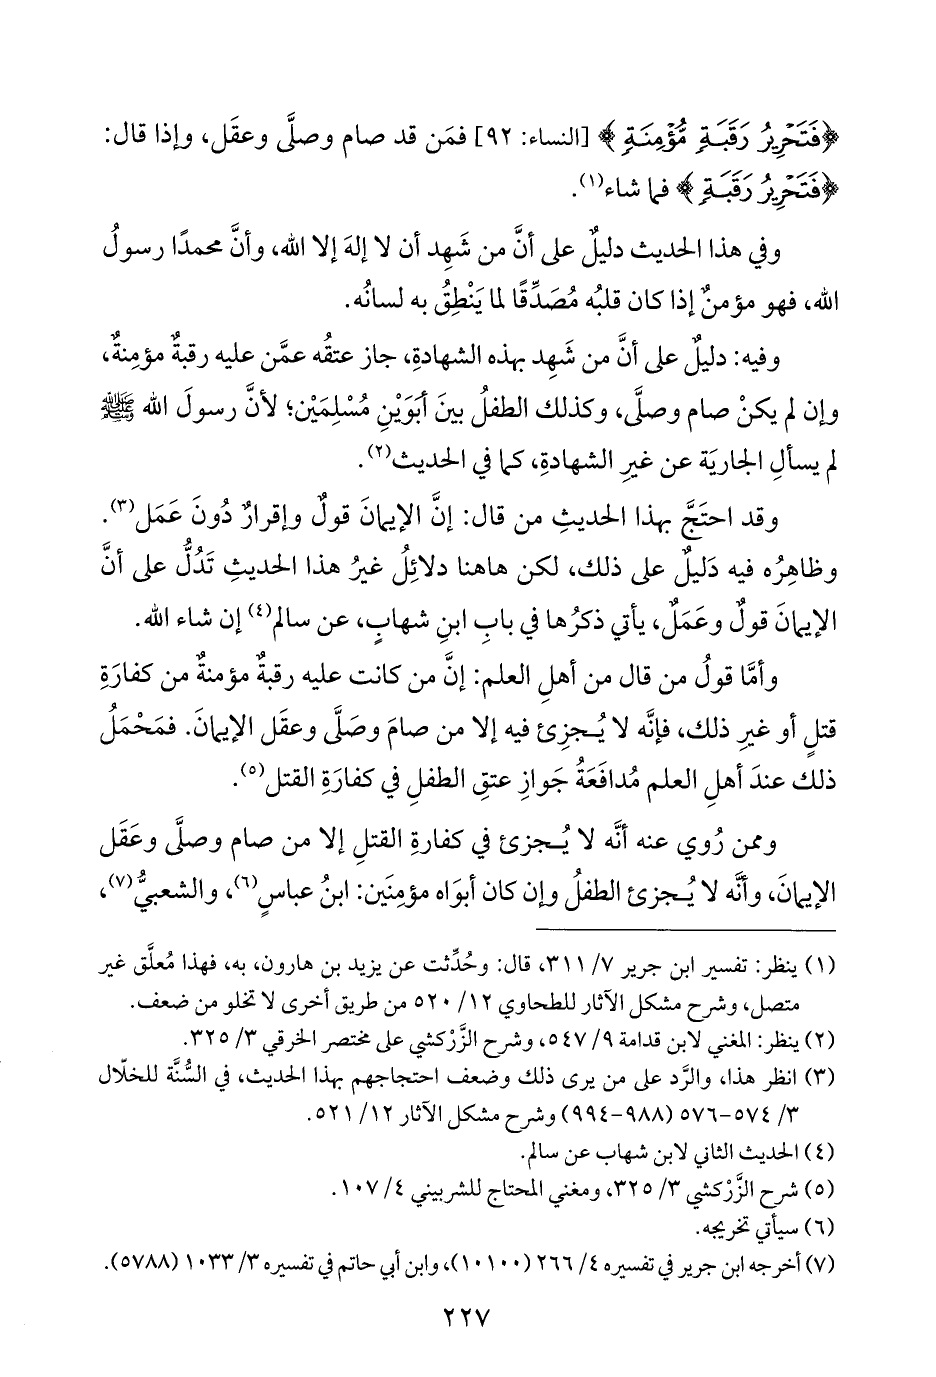 ﴿فَتَحْرِيرُ رَقَبَةٍ مُّؤْمِنَةٍ﴾ [النساء: ٩٢] فمَن قد صام وصلَّى وعقَل، وإذا قال:
﴿فَتَحْرِيرُ رَقَبَةٍ﴾ فما شاء(١).
وفي هذا الحديث دليلٌ على أنَّ من شَهِد أن لا إلهَ إلا الله، وأنَّ محمدًا رسولُ
الله، فهو مؤمنٌ إذا كان قلبُه مُصَدِّقًا لما يَنْطِقُ به لسانُه.
وفيه: دليلٌ على أنَّ من شَهِد بهذه الشهادةِ، جاز عتقُه عمَّن عليه رقبةٌ مؤمنةٌ،
وإن لم يكنْ صام وصلَّى، وكذلك الطفلُ بينَ أبَوَيْنِ مُسْلِمَيْن؛ لأنَّ رسولَ الله ﷺ
لم يسألِ الجاريَة عن غيرِ الشهادةِ، كما في الحديث(٢).
وقد احتَجَّ بهذا الحديثِ من قال: إنَّ الإيمانَ قولٌ وإقرارٌ دُونَ عَمَل(٣).
وظاهِرُه فيه دَليلٌ على ذلك، لكن هاهنا دلائِلُ غيرُ هذا الحديثِ تَدُلُّ على أنَّ
الإيمانَ قولٌ وعَمَلٌ، يأتي ذكرُها في بابِ ابنِ شهابٍ، عن سالم(٤) إن شاء الله.
وأمَّا قولُ من قال من أهلِ العلم: إنَّ من كانت عليه رقبةٌ مؤمنةٌ من كفارَةِ
قتلٍ أو غيرِ ذلك، فإنَّه لا يُـجزِئ فيه إلا من صامَ وصَلَّى وعقَل الإيمانَ. فمَحْمَلُ
ذلك عندَ أهلِ العلم مُدافَعَةُ جَوازِ عتقِ الطفلِ في كفارَةِ القتل(٥).
وممن رُوي عنه أنَّه لا يُـجزئ في كفارةِ القتلِ إلا من صام وصلَّى وعَقَل
الإيمانَ، وأنَّه لا يُـجزئ الطفلُ وإن كان أبوَاه مؤمِنَين: ابنُ عباسٍ(٦)، والشعبيُّ(٧)،
(١) ينظر: تفسير ابن جرير ٧/ ٣١١، قال: وحُدِّثت عن يزيد بن هارون، به، فهذا مُعلَّق غير
متصل، وشرح مشكل الآثار للطحاوي ١٢/ ٥٢٠ من طريق أخرى لا تخلو من ضعف.
(٢) ينظر: المغني لابن قدامة ٩/ ٥٤٧، وشرح الزَّرْكشي على مختصر الخرقي ٣/ ٣٢٥.
(٣) انظر هذا، والرَّد على من يرى ذلك وضعف احتجاجهم بهذا الحديث، في السُّنَّة للخلّال
٣/ ٥٧٤-٥٧٦ (٩٨٨-٩٩٤) وشرح مشكل الآثار ١٢/ ٥٢١.
(٤) الحديث الثاني لابن شهاب عن سالم.
(٥) شرح الزَّرْكشي ٣/ ٣٢٥، ومغني المحتاج للشربيني ٤/ ١٠٧.
(٦) سيأتي تخريجه.
(٧) أخرجه ابن جرير في تفسيره ٤/ ٢٦٦ (١٠١٠٠)، وابن أبي حاتم في تفسيره ٣/ ١٠٣٣ (٥٧٨٨).
٢٢٧